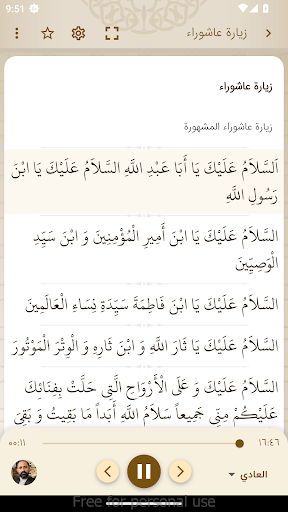 9:51
زيارة عاشوراء
زيارة عاشوراء
زيارة عاشوراء المشهورة
اَلسَّلاَمُ عَلَيْكَ يَا أَبَا عَبْدِ اللَّهِ السَّلاَمُ عَلَيْكَ يَا ابْنَ
رَسُولِ اللَّهِ
السَّلاَمُ عَلَيْكَ يَا ابْنَ أَمِيرِ الْمُؤْمِنِينَ وَ ابْنَ سَيِّدِ
الْوَصِيِّينَ
السَّلاَمُ عَلَيْكَ يَا ابْنَ فَاطِمَةَ سَيِّدَةِ نِسَاءِ الْعَالَمِينَ
السَّلاَمُ عَلَيْكَ يَا ثَارَ اللَّهِ وَ ابْنَ ثَارِهِ وَ الْوِتْرَ الْمَوْتُورَ
السَّلاَمُ عَلَيْكَ وَ عَلَى الْأَرْوَاحِ الَّتِي حَلَّتْ بِفِنَائِكَ
عَلَيْكُمْ مِنِّي جَمِيعاً سَلاَمُ اللَّهِ أَبَداً مَا بَقِيتُ وَ بَقِيَ
٠٠:١١
١٦:٤٦
العادي
Free for personal use